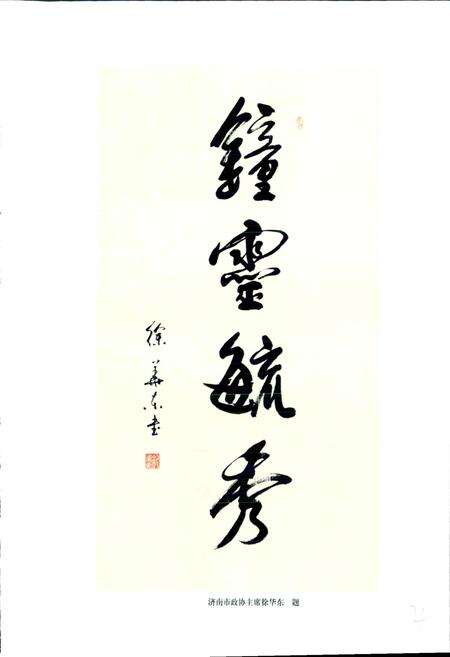 鐘靈毓秀
徐華东书
济南市政协主席徐华东　题